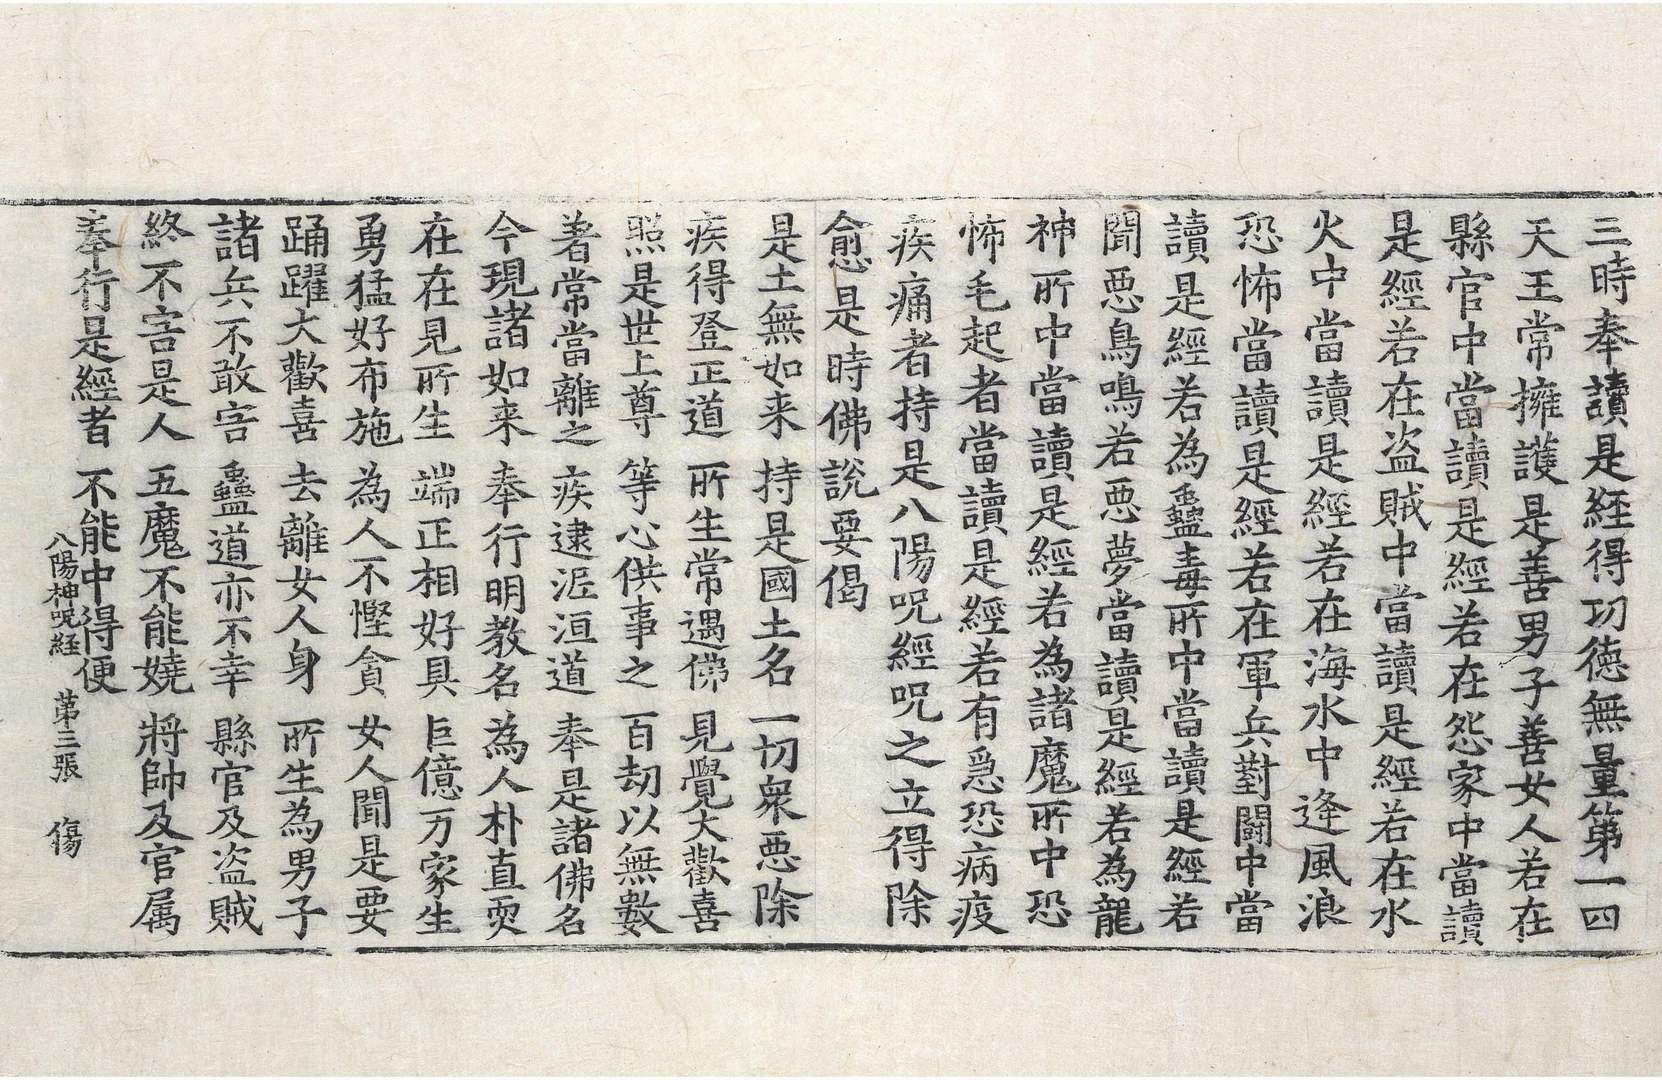 三時奉讀是經得功德無量第一四
天王常擁護是善男子善女人若在
縣官中當讀是經若在怨家中當讀
是經若在盗賊中當讀是經若在水
火中當讀是經若在海水中逢風浪
恐怖當讀是經若在軍兵對鬪中當
讀是經若為蠱毒所中當讀是經若
聞惡鳥鳴若惡夢當讀是經若為龍
神所中當讀是經若為諸魔所中恐
怖毛起者當讀是經若有急恐病疫
疾痛者持是八陽呪經呪之立得除
愈是時佛說要偈
是土無如来 持是國土名 一切衆惡除
疾得登正道 所生常遇佛 見覺大歡喜
照是世上尊 等心供事之 百劫以無數
著常當離之 疾逮泥洹道 奉是諸佛名
今現諸如来 奉行明教名 為人朴直耎
在在見所生 端正相好具 巨億万家生
勇猛好布施 為人不慳貪 女人聞是要
踊躍大歡喜 去離女人身 所生為男子
諸兵不敢害 蠱道亦不幸 縣官及盗賊
終不害是人 五魔不能嬈 將帥及官属
奉行是經者 不能中得便
八陽神呪経 第三張 傷